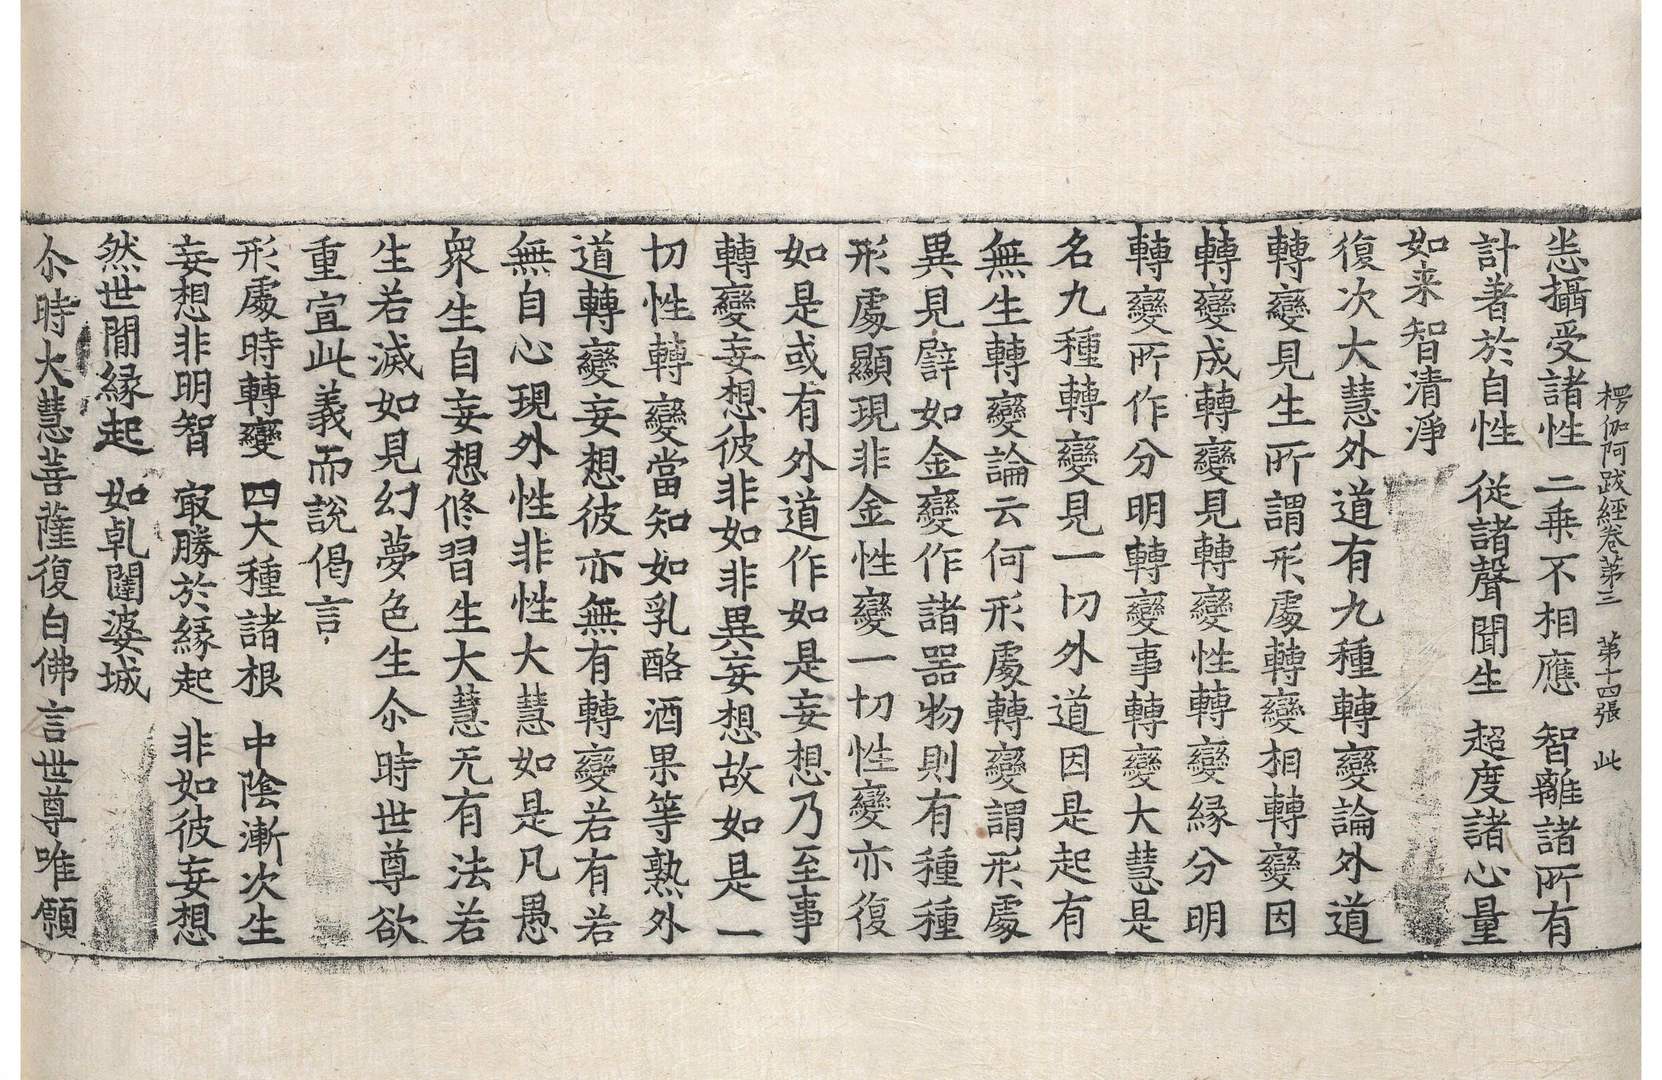 楞伽阿跋經卷第三　第十四張　此
恙攝受諸性　二乗不相應　智離諸所有
計著於自性　從諸聲聞生　超度諸心量
如来智清淨
復次大慧外道有九種轉變論外道
轉變見生所謂形處轉變相轉變因
轉變成轉變見轉變性轉變緣分明
轉變所作分明轉變事轉變大慧是
名九種轉變見一切外道因是起有
無生轉變論云何形處轉變謂形處
異見譬如金變作諸器物則有種種
形處顯現非金性變一切性變亦復
如是或有外道作如是妄想乃至事
轉變妄想彼非如非異妄想故如是一
切性轉變當知如乳酪酒果等熟外
道轉變妄想彼亦無有轉變若有若
無自心現外性非性大慧如是凡愚
衆生自妄想修習生大慧无有法若
生若滅如見幻夢色生尒時世尊欲
重宣此義而說偈言
形處時轉變　四大種諸根　中陰漸次生
妄想非明智　㝡勝於緣起　非如彼妄想
然世間緣起　如乹闥婆城
尒時大慧菩薩復白佛言世尊唯願